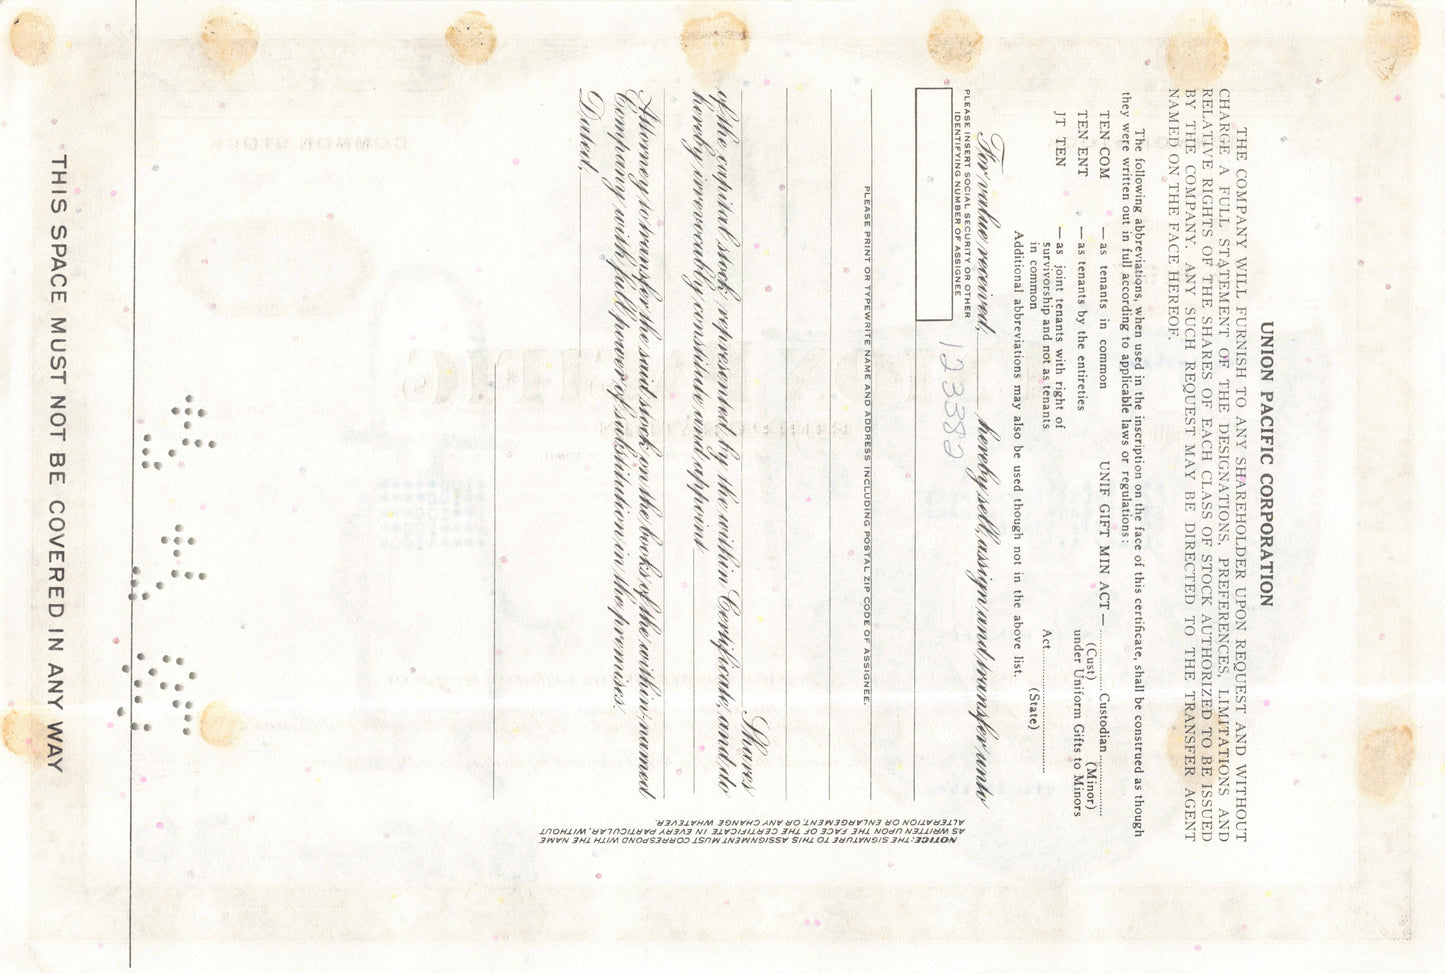 UNION PACIFIC CORPORATION
THE COMPANY WILL FURNISH TO ANY SHAREHOLDER UPON REQUEST AND WITHOUT
CHARGE A FULL STATEMENT OF THE DESIGNATIONS, PREFERENCES, LIMITATIONS AND
RELATIVE RIGHTS OF THE SHARES OF EACH CLASS OF STOCK AUTHORIZED TO BE ISSUED
BY THE COMPANY. ANY SUCH REQUEST MAY BE DIRECTED TO THE TRANSFER AGENT
NAMED ON THE FACE HEREOF.
The following abbreviations, when used in the inscription on the face of this certificate, shall be construed as though
they were written out in full according to applicable laws or regulations:
TEN COM — as tenants in common UNIF GIFT MIN ACT — .............. Custodian ..............
(Cust) (Minor)
TEN ENT — as tenants by the entireties under Uniform Gifts to Minors
JT TEN — as joint tenants with right of
survivorship and not as tenants Act..........................
in common (State)
Additional abbreviations may also be used though not in the above list.
For value received, hereby sell, assign and transfer unto
PLEASE INSERT SOCIAL SECURITY OR OTHER
IDENTIFYING NUMBER OF ASSIGNEE
123382
PLEASE PRINT OR TYPEWRITE NAME AND ADDRESS INCLUDING POSTAL ZIP CODE OF ASSIGNEE.
Shares
of the capital stock represented by the within Certificate, and do
hereby irrevocably constitute and appoint
Attorney to transfer the said stock on the books of the within-named
Company with full power of substitution in the premises.
Dated,
NOTICE: THE SIGNATURE TO THIS ASSIGNMENT MUST CORRESPOND WITH THE NAME
AS WRITTEN UPON THE FACE OF THE CERTIFICATE IN EVERY PARTICULAR, WITHOUT
ALTERATION OR ENLARGEMENT, OR ANY CHANGE WHATEVER.
THIS SPACE MUST NOT BE COVERED IN ANY WAY